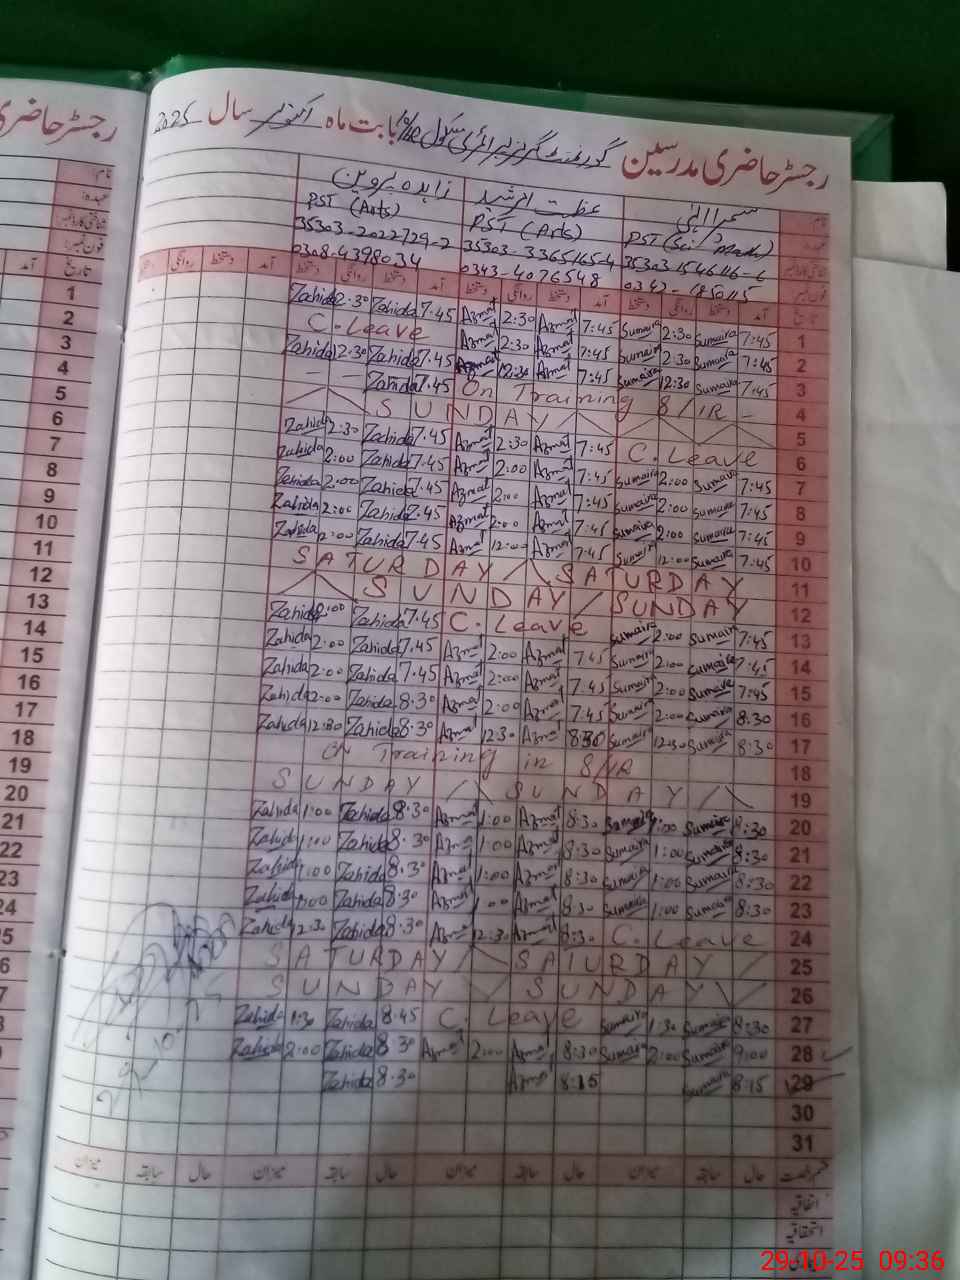 رجسٹر حاضری مدرسین گورنمنٹ گرلز پرائمری سکول بابت ماہ اکتوبر سال 2025
نام: زاہدہ پروین
عہدہ: PST (Sci/Math) PST (Arts) PST (Arts)
شناختی کارڈ نمبر 35303-3365165-4 35303-2022729-2
فون نمبر: 0343-4076548 0308-4398034
تاریخ آمد دستخط روانگی دستخط آمد دستخط روانگی دستخط آمد دستخط روانگی دستخط آمد دستخط روانگی دستخط
1 7:45 Sumaira 2:30 Sumaira 7:45 Azmat 2:30 Azmat 7.45 Zahida 2.30 Zahida
2 7:45 Sumaira 2:30 Sumaira 7:45 Azmat 2:30 Azmat C. Leave
3 7:45 Sumaira 12:30 Sumaira 7:45 Azmat 12:30 Azmat 7.45 Zahida 12.30 Zahida
4 On Training 7.45 Zahida - -
5 SUNDAY
6 C. Leave 7:45 Azmat 2:30 Azmat 7.45 Zahida 2:30 Zahida
7 7:45 Sumaira 2:00 Sumaira 7:45 Azmat 2:00 Azmat 7.45 Zahida 2:00 Zahida
8 7:45 Sumaira 2:00 Sumaira 7:45 Azmat 2:00 Azmat 7.45 Zahida 2:00 Zahida
9 7:45 Sumaira 2:00 Sumaira 7:45 Azmat 2:00 Azmat 7.45 Zahida 2:00 Zahida
10 7:45 Sumaira 12:00 Sumaira 7:45 Azmat 12:00 Azmat 7.45 Zahida 12:00 Zahida
11 SATURDAY SATURDAY
12 SUNDAY SUNDAY
13 7:45 Sumaira 2:00 Sumaira C. Leave 7.45 Zahida 2:00 Zahida
14 7:45 Sumaira 2:00 Sumaira 7:45 Azmat 2:00 Azmat 7.45 Zahida 2:00 Zahida
15 7:45 Sumaira 2:00 Sumaira 7:45 Azmat 2:00 Azmat 7.45 Zahida 2:00 Zahida
16 8:30 Sumaira 2:00 Sumaira 7:45 Azmat 2:00 Azmat 8.30 Zahida 2:00 Zahida
17 8:30 Sumaira 12:30 Sumaira 8:30 Azmat 12:30 Azmat 8.30 Zahida 12:30 Zahida
18 On Training in
19 SUNDAY SUNDAY
20 8:30 Sumaira 1:00 Sumaira 8:30 Azmat 1:00 Azmat 8.30 Zahida 1:00 Zahida
21 8:30 Sumaira 1:00 Sumaira 8:30 Azmat 1:00 Azmat 8.30 Zahida 1:00 Zahida
22 8:30 Sumaira 1:00 Sumaira 8:30 Azmat 1:00 Azmat 8.30 Zahida 1:00 Zahida
23 8:30 Sumaira 1:00 Sumaira 8:30 Azmat 1:00 Azmat 8.30 Zahida 1:00 Zahida
24 C. Leave 8:30 Azmat 12:30 Azmat 8.30 Zahida 12:30 Zahida
25 SATURDAY SATURDAY
26 SUNDAY SUNDAY
27 8:30 Sumaira 1:30 Sumaira C. Leave 8.45 Zahida 1:30 Zahida
28 9:00 Sumaira 2:00 Sumaira 8:30 Azmat 2:00 Azmat 8.30 Zahida 2:00 Zahida
29 8:15 Sumaira 8:15 Azmat 8.30 Zahida
30
31
حال سابقہ میزان حال سابقہ میزان حال سابقہ میزان حال سابقہ میزان
اتفاقیہ
استحقاقیہ
29-10-25 09:36